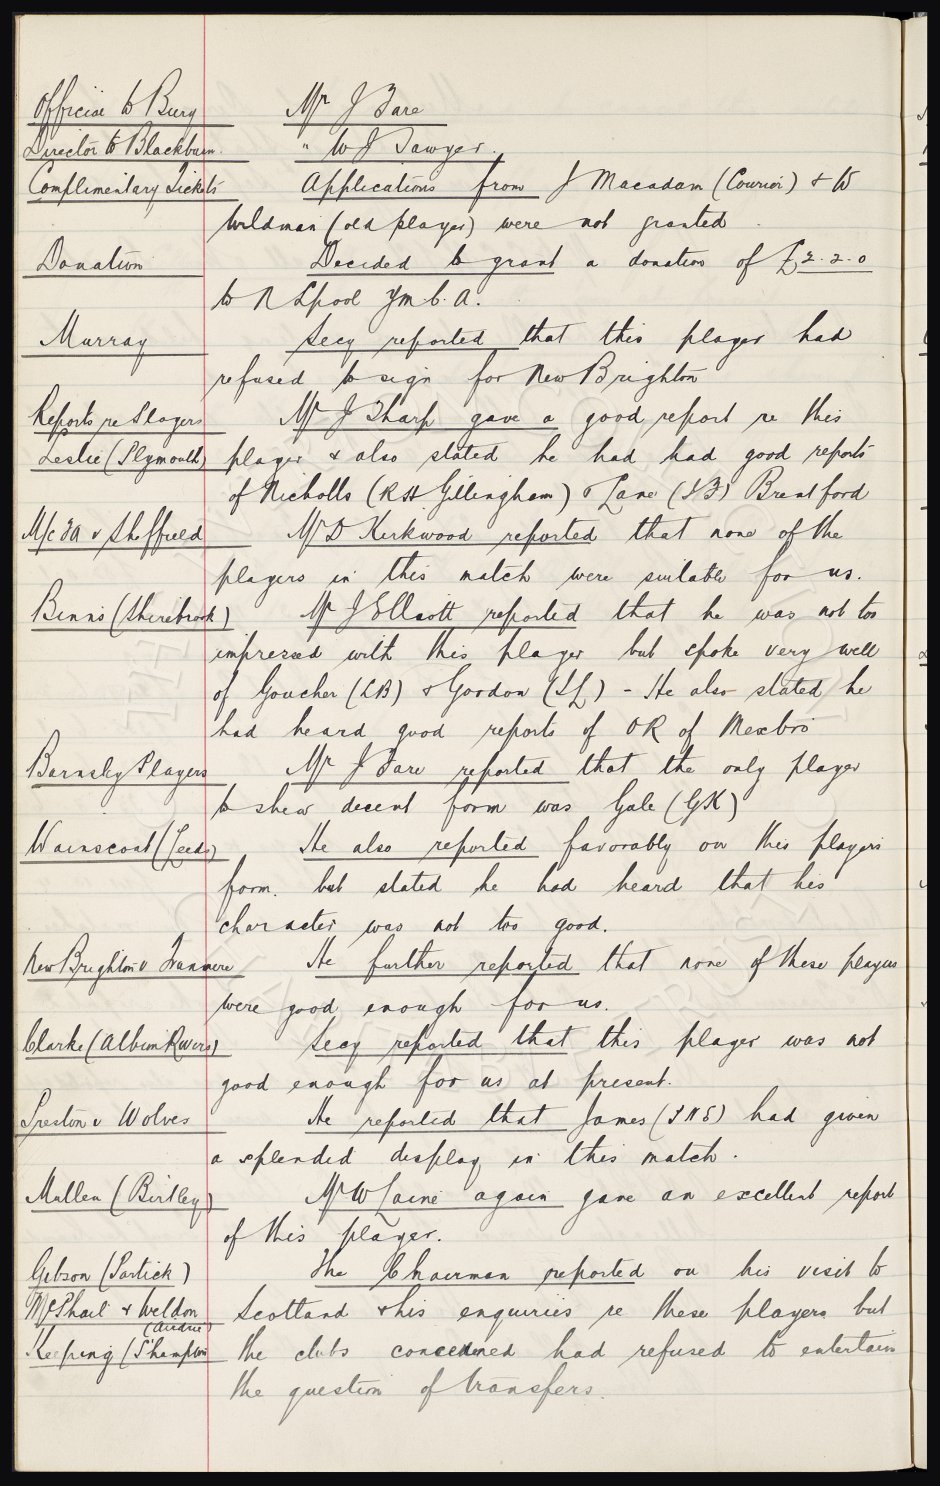 Official to Bury Mr J Fare
Director to Blackburn. " W J Sawyer.
Complimentary Tickets Applications from J Macadam (Courier) & W
Wildman (old player) were not granted.
Donation Decided to grant a donation of £2-2-0
to N Lpool Y m C. A.
Murray Secy reported that this player had
refused to sign for New Brighton
Reports re Players Mr J Sharp gave a good report re this
Leslie (Plymouth) player & also stated he had had good reports
of Nicholls (RH Gillingham) & Lane (IF) Brentford
M/c FA v Sheffield Mr D Kirkwood reported that none of the
players in this match were suitable for us.
Binns (Shirebrook) Mr J Elliott reported that he was not too
impressed with this player but spoke very well
of Goucher (LB) & Gordon (IL) - He also stated he
had heard good reports of OR of Mexbro
Barnsley Players Mr J Fare reported that the only player
to shew decent form was Gale (GK)
Wainscoat (Leeds) He also reported favorably on this players
form. but stated he had heard that his
character was not too good.
New Brighton v Tranmere He further reported that none of these players
were good enough for us.
Clarke (Albion Rovers) Secy reported that this player was not
good enough for us at present.
Preston v Wolves He reported that James (PNE) had given
a splendid display in this match.
Mullen (Birtley) Mr W Caine again gave an excellent report
of this player.
Gibson (Partick) The Chairman reported on his visit to
McPhail & Weldon Scotland & his enquiries re these players but
(Airdrie)
Keeping (S'hampton the clubs concerned had refused to entertain
the question of transfers.